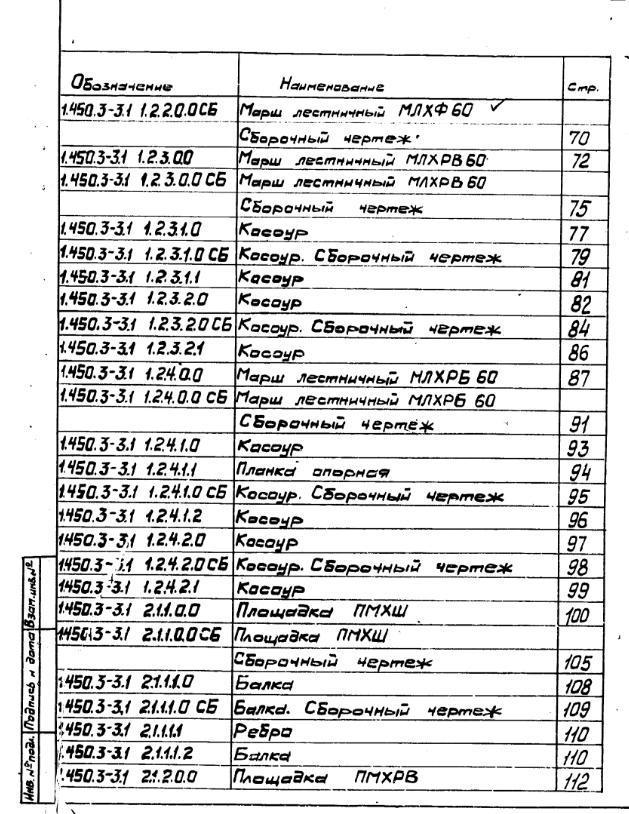 Обозначение Наименование Стр.
1.450.3-3.1 1.2.2.0.0 СБ Марш лестничный МЛХФ 60 ✓
Сборочный чертеж 70
1.450.3-3.1 1.2.3.0.0 Марш лестничный МЛХРВ 60 72
1.450.3-3.1 1.2.3.0.0 СБ Марш лестничный МЛХРВ 60
Сборочный чертеж 75
1.450.3-3.1 1.2.3.1.0 Косоур 77
1.450.3-3.1 1.2.3.1.0 СБ Косоур. Сборочный чертеж 79
1.450.3-3.1 1.2.3.1.1 Косоур 81
1.450.3-3.1 1.2.3.2.0 Косоур 82
1.450.3-3.1 1.2.3.2.0 СБ Косоур. Сборочный чертеж 84
1.450.3-3.1 1.2.3.2.1 Косоур 86
1.450.3-3.1 1.2.4.0.0 Марш лестничный МЛХРБ 60 87
1.450.3-3.1 1.2.4.0.0 СБ Марш лестничный МЛХРБ 60
Сборочный чертеж 91
1.450.3-3.1 1.2.4.1.0 Косоур 93
1.450.3-3.1 1.2.4.1.1 Планка опорная 94
1.450.3-3.1 1.2.4.1.0 СБ Косоур. Сборочный чертеж 95
1.450.3-3.1 1.2.4.1.2 Косоур 96
1.450.3-3.1 1.2.4.2.0 Косоур 97
1.450.3-3.1 1.2.4.2.0 СБ Косоур. Сборочный чертеж 98
1.450.3-3.1 1.2.4.2.1 Косоур 99
1.450.3-3.1 2.1.1.0.0 Площадка ПМХШ 100
1.450.3-3.1 2.1.1.0.0 СБ Площадка ПМХШ
Сборочный чертеж 105
1.450.3-3.1 2.1.1.1.0 Балка 108
1.450.3-3.1 2.1.1.1.0 СБ Балка. Сборочный чертеж 109
1.450.3-3.1 2.1.1.1.1 Ребро 110
1.450.3-3.1 2.1.1.1.2 Балка 110
1.450.3-3.1 2.1.2.0.0 Площадка ПМХРВ 112
Инв. № подл. Подпись и дата Взам. инв. №